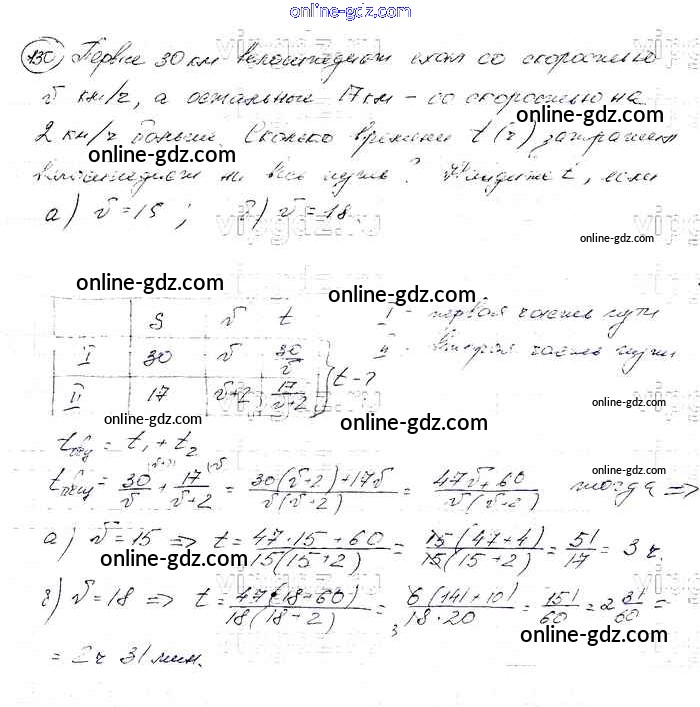 online-gdz.com
130) Первые 30 км велосипедист ехал со скоростью
v км/ч, а остальные 17 км – со скоростью на
online-gdz.com
2 км/ч больше. Сколько времени t (ч) затратил
online-gdz.com
велосипедист на весь путь? Найдите t, если
а) v = 15 ; б) v = 18.
online-gdz.com
online-gdz.com
online-gdz.com
S v t I - первая часть пути
I 30 v 30/v II - вторая часть пути
II 17 v+2 17/(v+2) } t - ?
online-gdz.com
online-gdz.com
online-gdz.com
t = t₁ + t₂
online-gdz.com
t = 30/v + 17/(v+2) = (30(v+2)+17v)/(v(v+2)) = (47v+60)/(v(v+2)) тогда =>
online-gdz.com
а) v = 15 => t = (47·15+60)/(15(15+2)) = 15(47+4)/(15(15+2)) = 51/17 = 3 ч.
online-gdz.com
online-gdz.com
б) v = 18 => t = 47(18+60)/(18(18+2)) = 6(141+10)/(18·20) = 151/60 = 2 31/60 =
online-gdz.com
online-gdz.com
= 2 ч 31 мин.